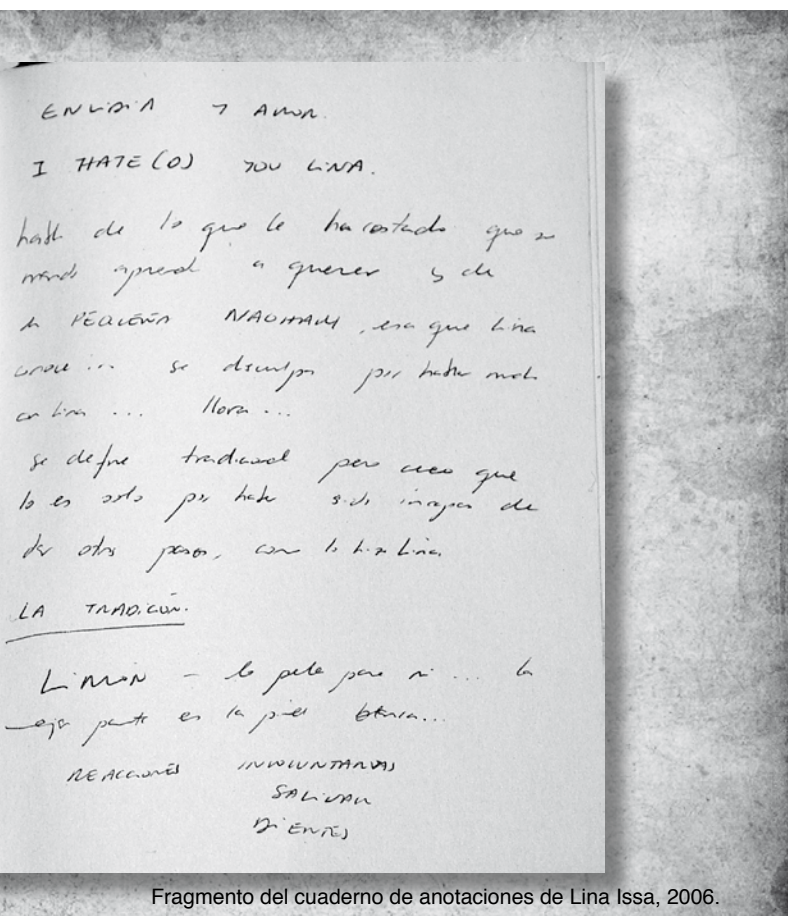 ENVIDIA Y AMOR.
I HATE(O) YOU LINA.
habla de lo que le ha costado que su
marido aprenda a querer y de
la PEQUEÑA NAGHAM, esa que Lina
conoce ... se disculpa por hablar mal
con Lina ... llora ...
se define tradicional pero creo que
lo es solo por haber sido incapaz de
dar otros pasos, como lo hizo Lina
LA TRADICIÓN.
LIMÓN - lo pela para mi ... la
mejor parte es la piel blanca...
REACCIONES INVOLUNTARIAS
SALIVAR
DIENTES
Fragmento del cuaderno de anotaciones de Lina Issa, 2006.